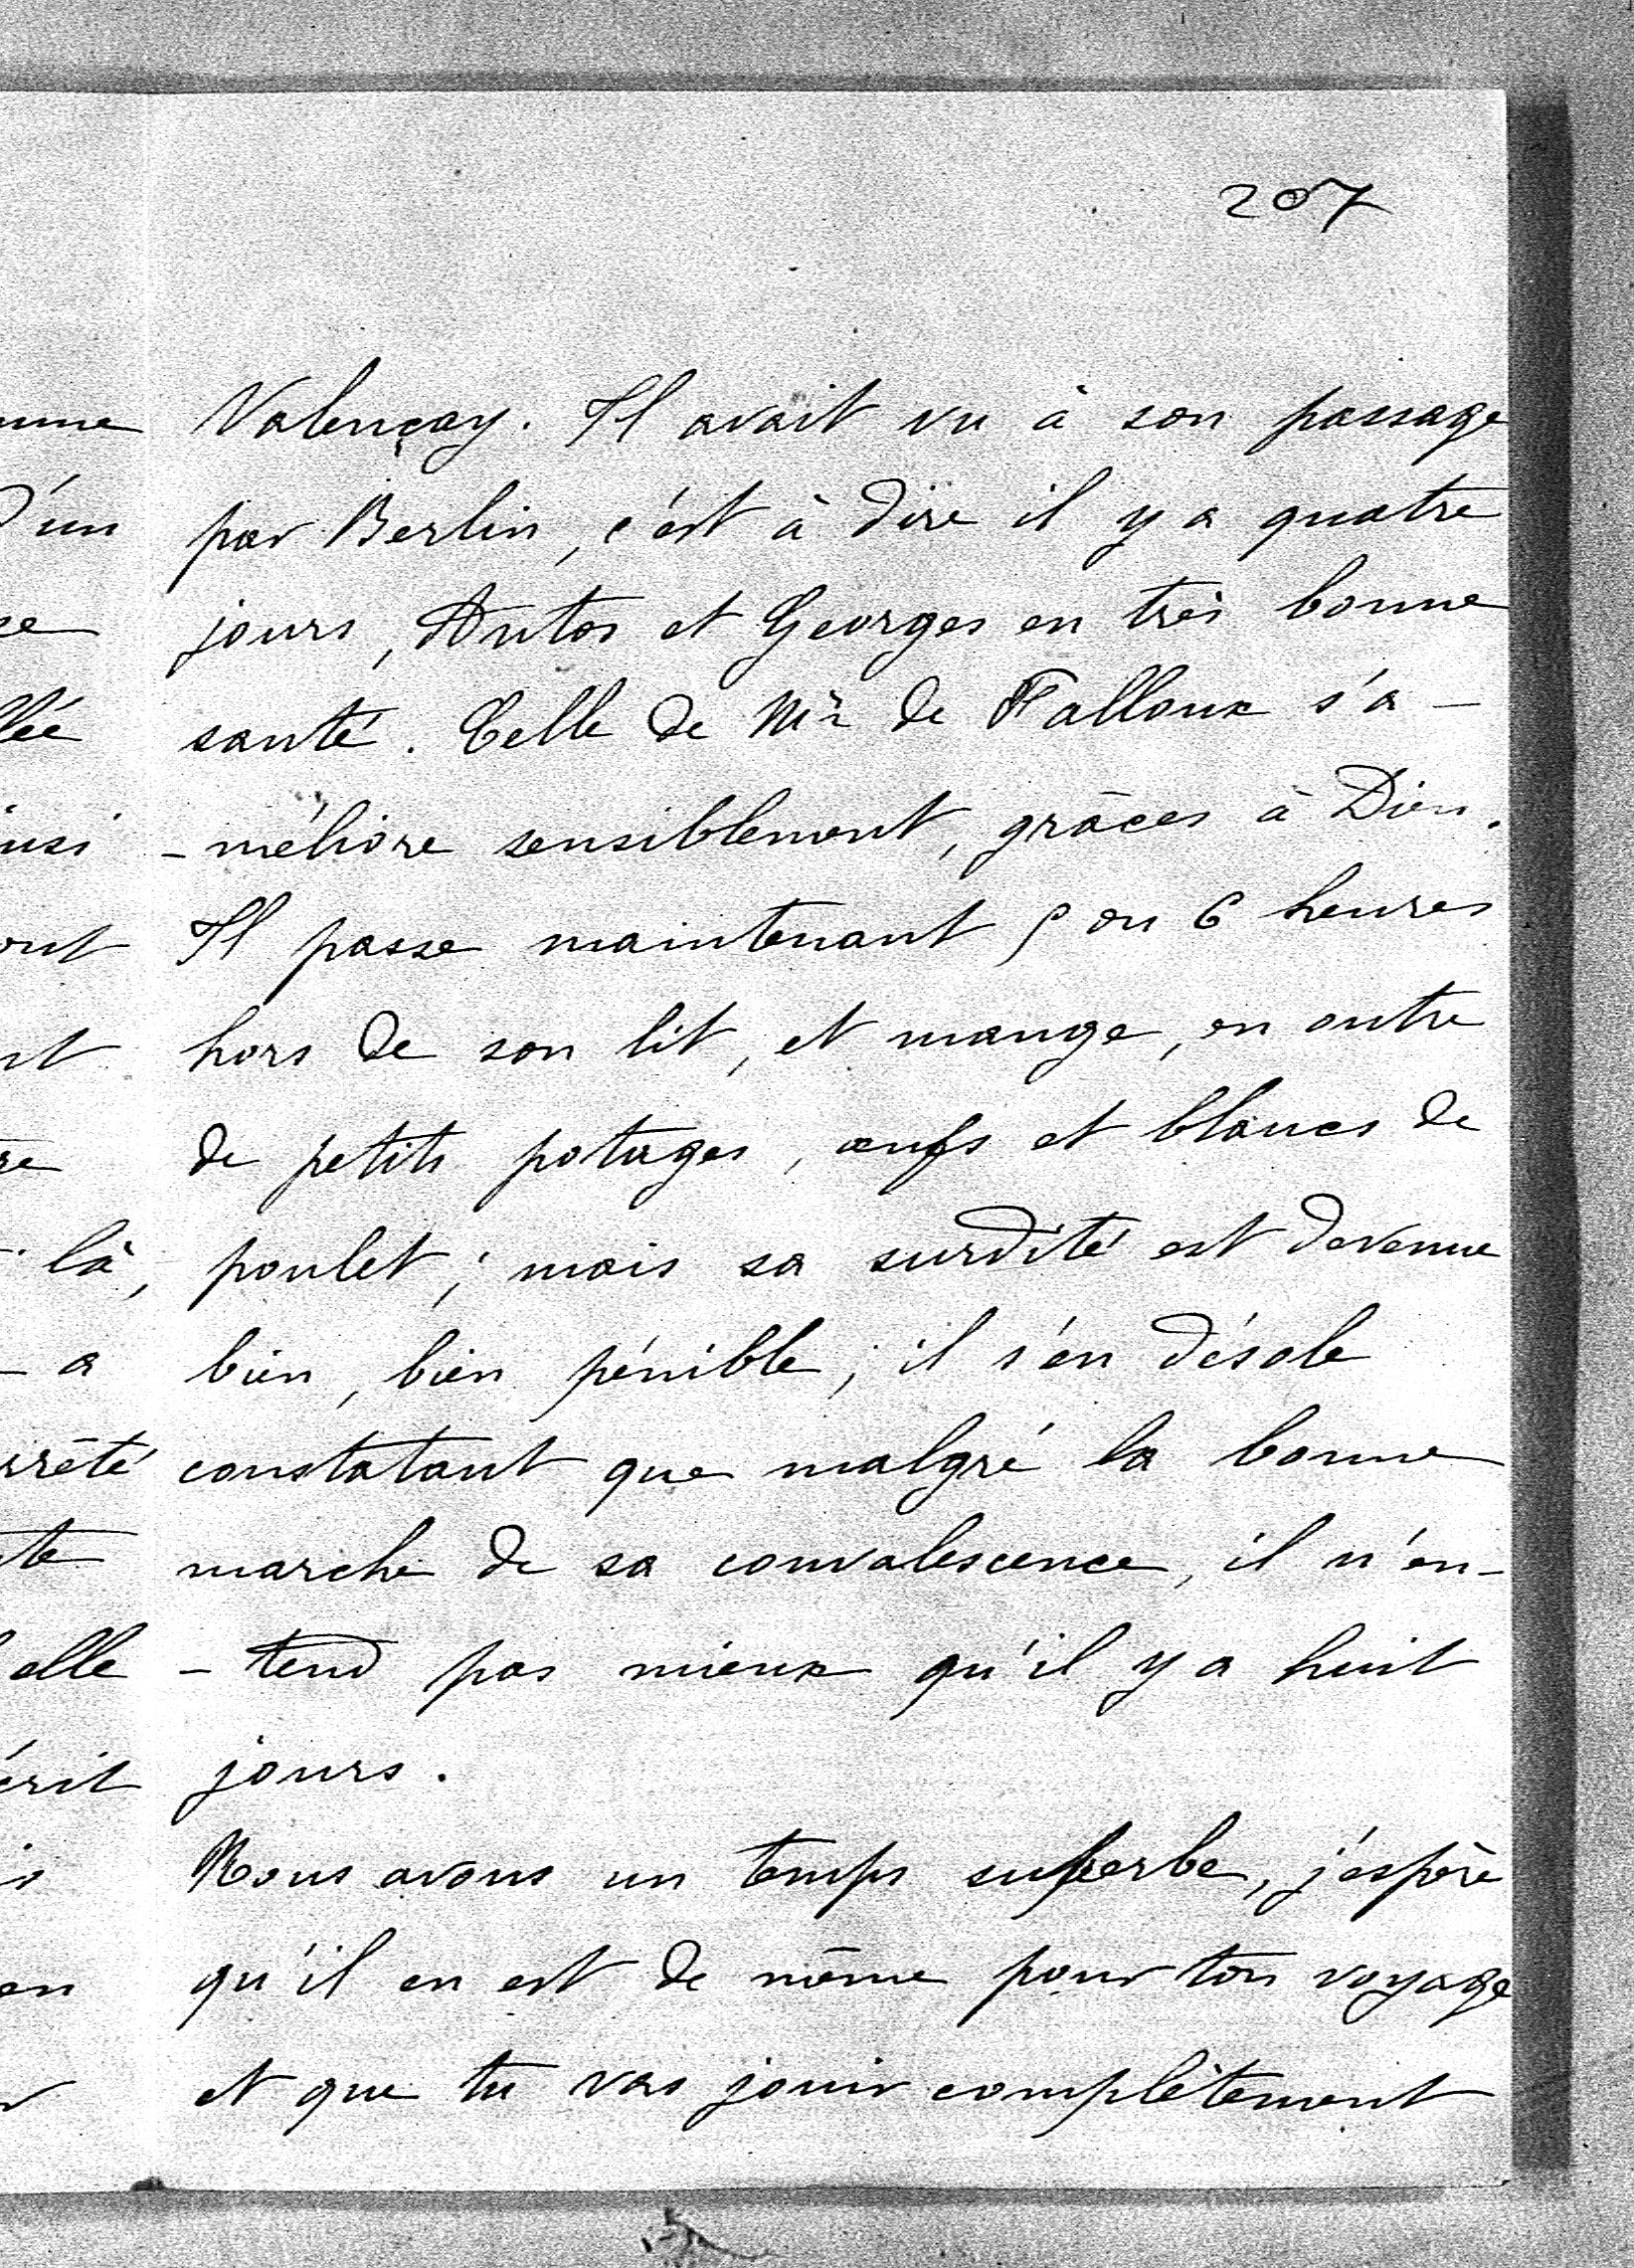 207
Valençay. Il avait vu à son passage
par Berlin, c'est à dire il y a quatre
jours, Antos et Georges en très bonne
santé. Celle de Mr de Falloux s'a-
-méliore sensiblement, grâces à Dieu.
Il passe maintenant 5 ou 6 heures
hors de son lit, et mange, en outre
de petits potages, œufs et blancs de
poulet ; mais sa surdité est devenue
bien, bien pénible ; il s'en désole
constatant que malgré la bonne
marche de sa convalescence, il n'en-
-tend pas mieux qu'il y a huit
jours.
Nous avons un temps superbe, j'espère
qu'il en est de même pour ton voyage
et que tu vas jouir complètement